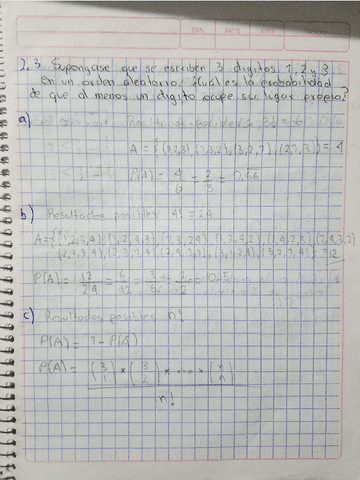 DIA MES AÑO FOLIO
2.3 Supongase que se escriben 3 digitos 1, 2 y 3
en un orden aleatorio. ¿Cuál es la probabilidad
de que al menos un digito ocupe su lugar propio?
a) Resultados posibles 3! = 6
A = {(1,2,3), (1,3,2), (3,2,1), (2,1,3)} = 4
P(A) = 4/6 = 2/3 = 0.66
b) Resultados posibles 4! = 24
A = {(1,2,3,4), (1,2,4,3), (1,3,2,4), (1,3,4,2), (1,4,2,3), (1,4,3,2)
= 12
P(A) = 12/24 = 6/12 = 3/6 = 1/2 = 0.5
c) Resultados posibles n!
P(A) = 1 - P(A)
P(A) = (3 1) * (3 2) * ... * (n n)
n!